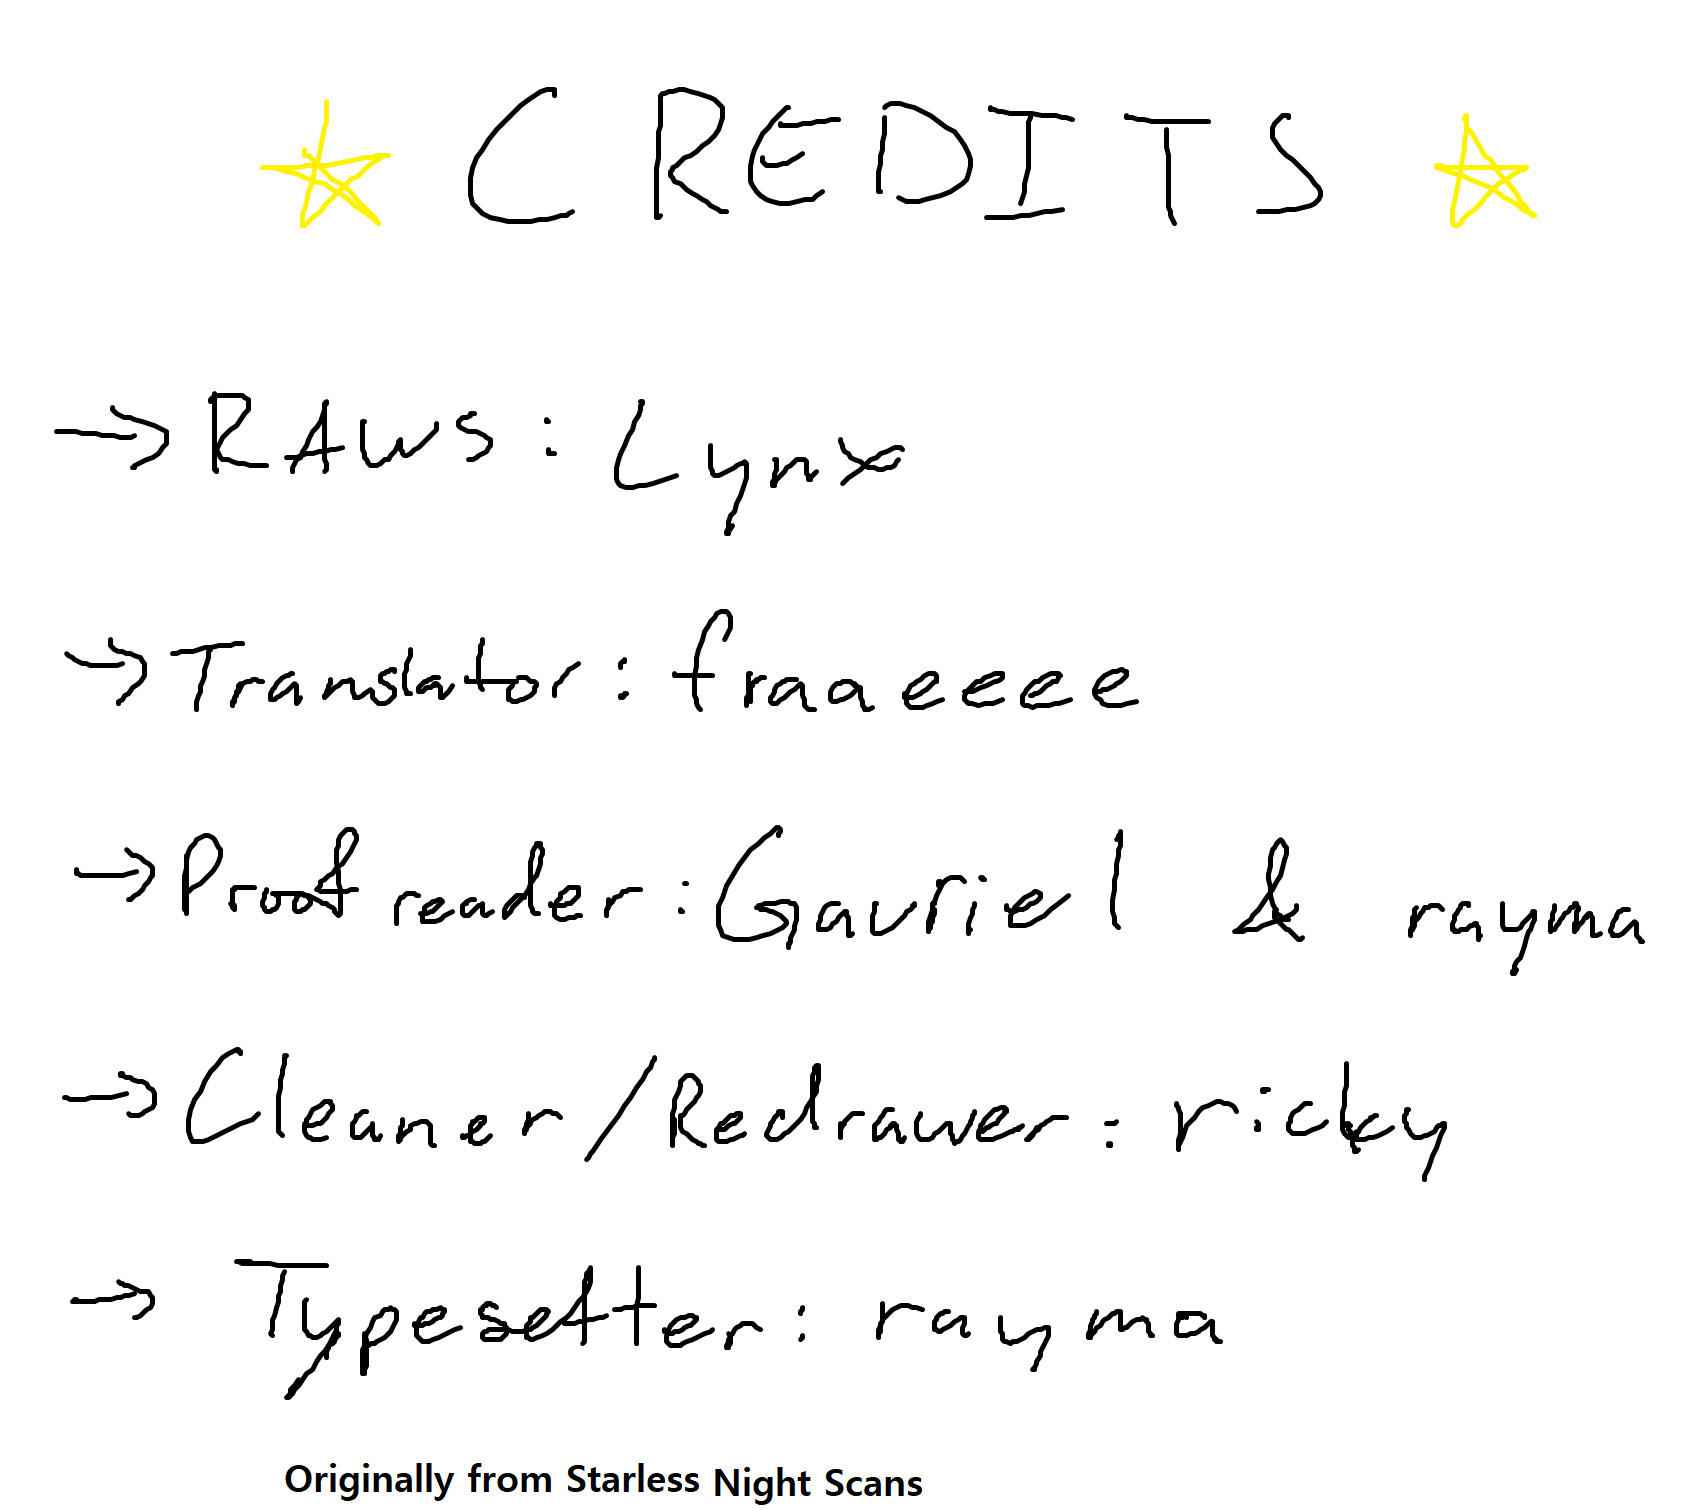 CREDITS
→ RAws: Lynx
→ Translator: fraaeeee
→ Proof reader: Gavriel & rayma
→ Cleaner/Redrawer: ricky
→ Typesetter: rayma
Originally from Starless Night Scans